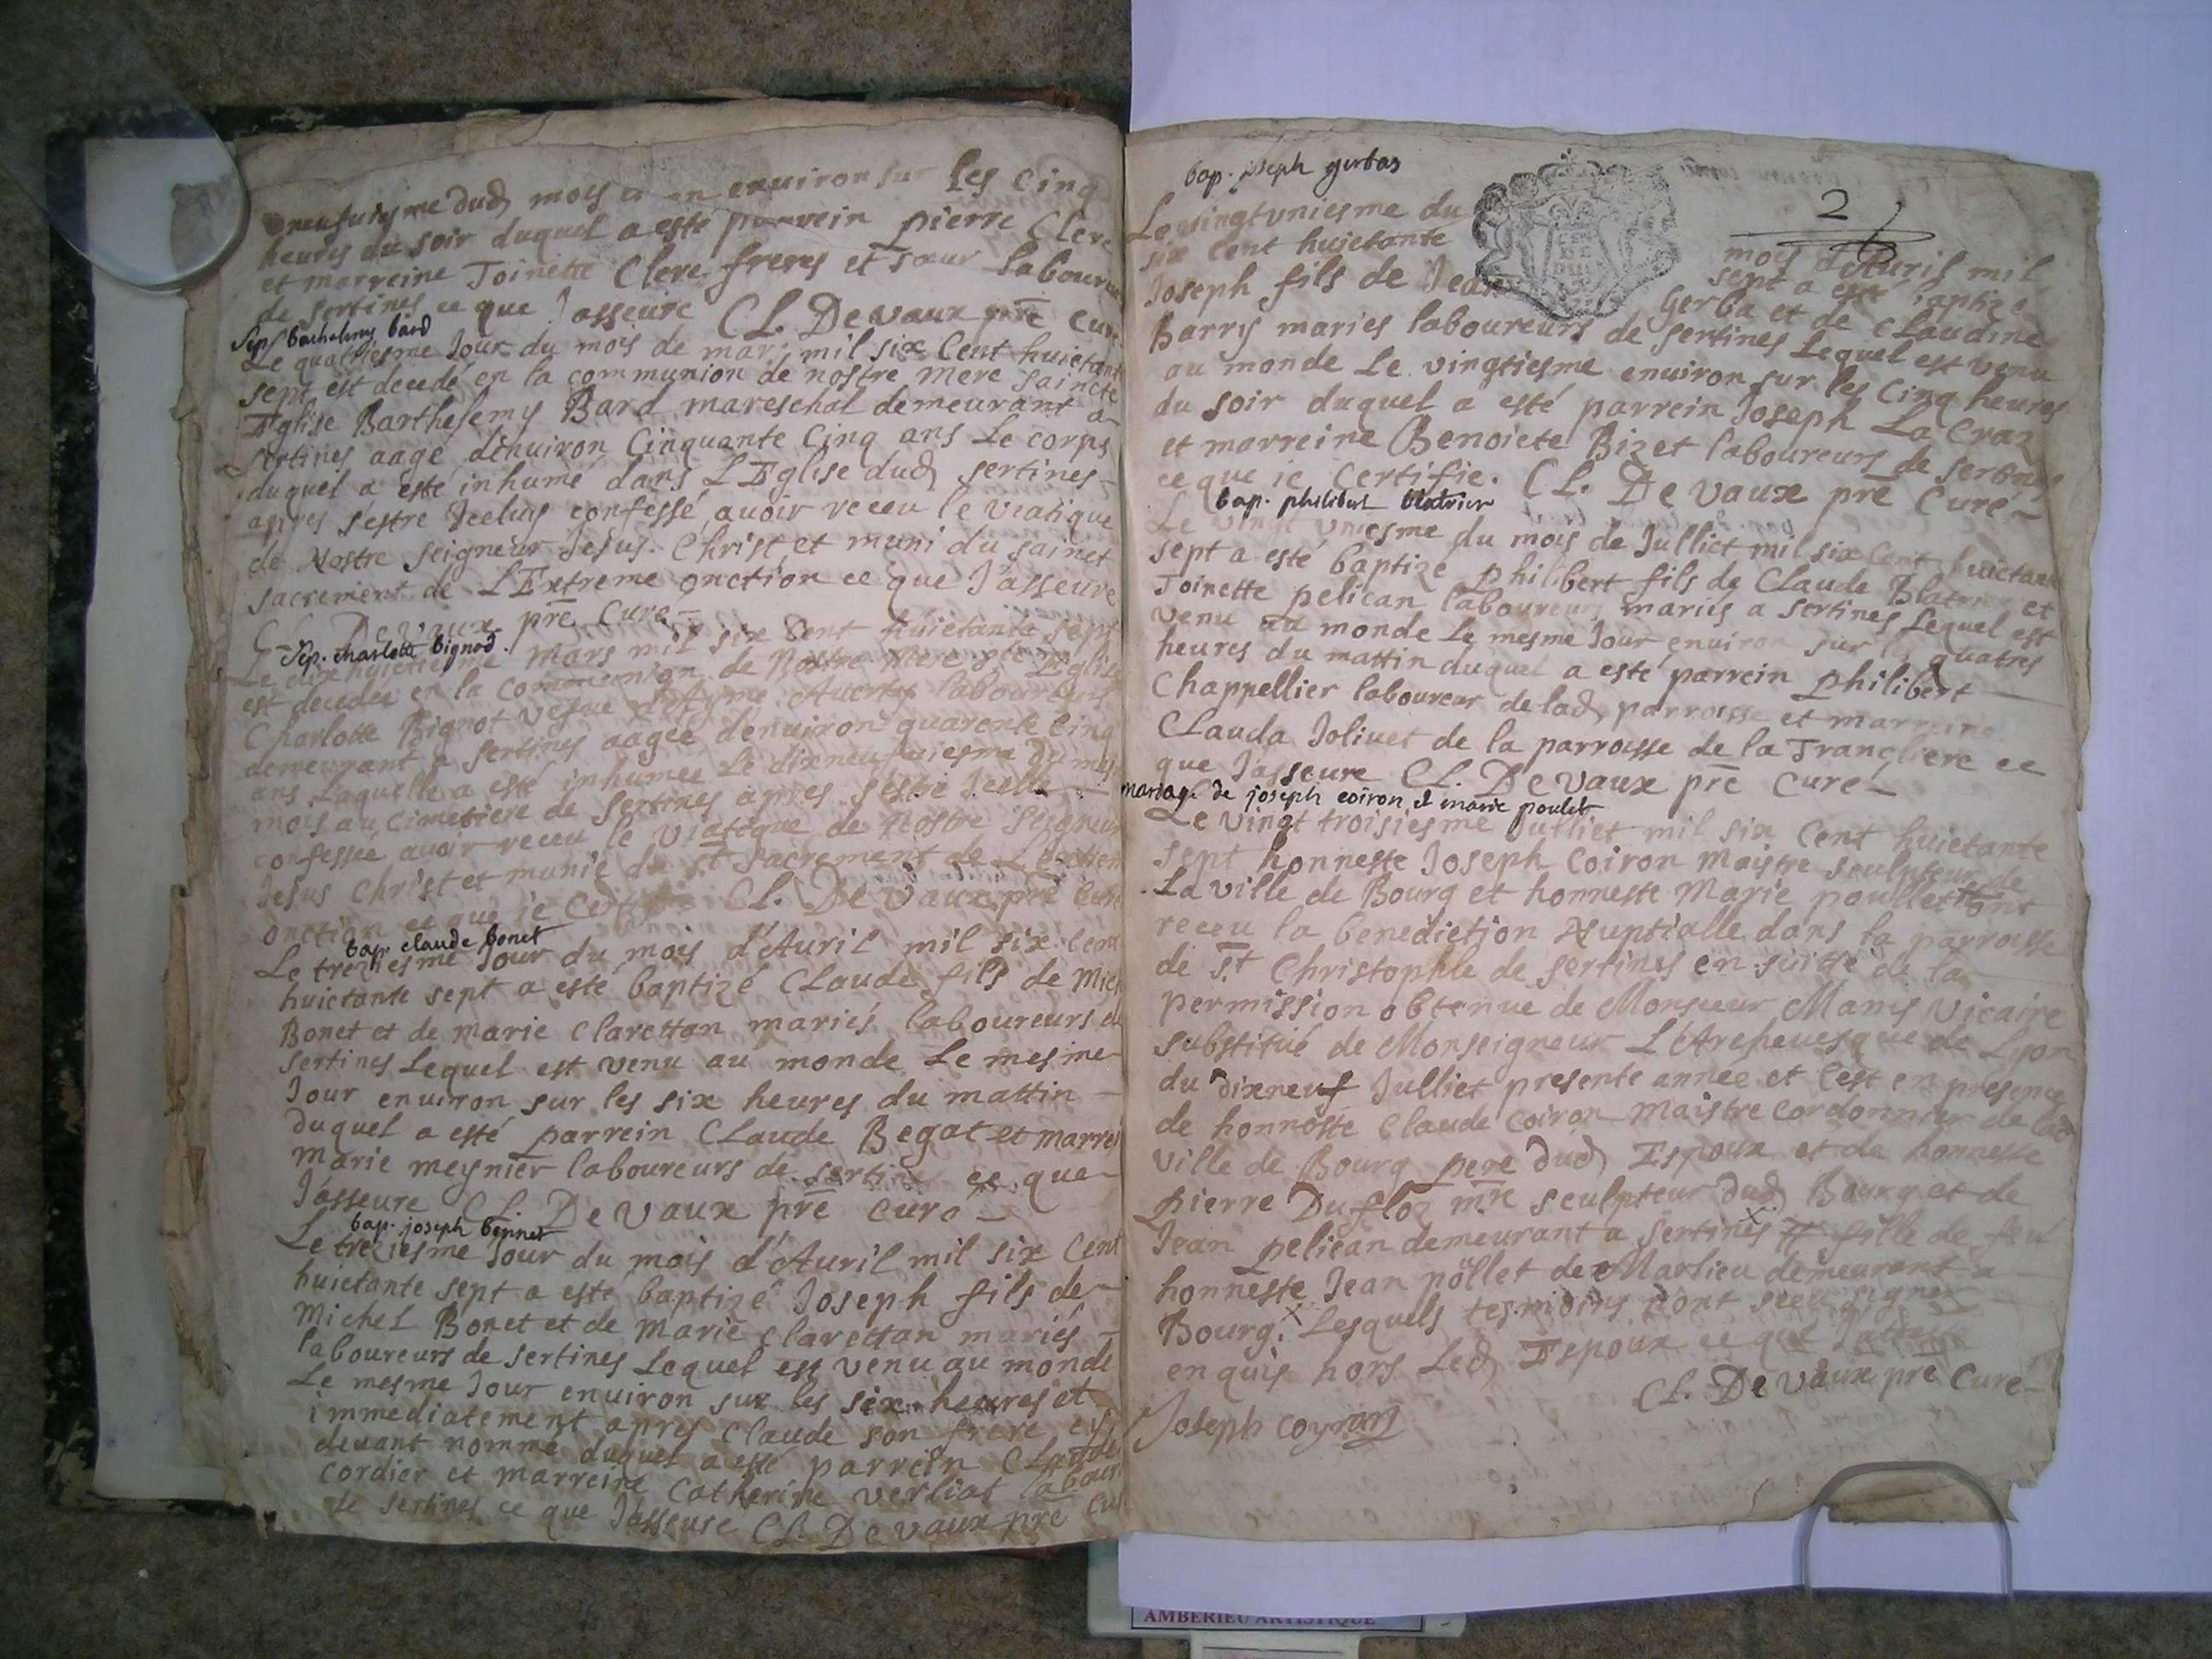 neufuiesme dud mois et an enuiron sur les Cinq
heures du soir duquel a esté parrein pierre Clere
et marreine Toinette Clere freres et sœur laboureurs
de sertines ce que Jasseure CL. De vaux pre curé
Sep. barthelemy bard
Le quatriesme Jour du mois de mars mil six Cent huictante
sept est decedé en la communion de nostre mere saincte
Eglise Barthelemy Bard mareschal demeurant a
sertines aagé denuiron Cinquante Cinq ans Le corps
duquel a esté inhumé dans L'Eglise dud sertines
apres s'estre Jceluy confessé, auoir receu le viatique
de Nostre Seigneur Jesus Christ et muni du sainct
sacrement de L'Extreme onction ce que J'asseure
CL. De vaux pre Curé
Sep. charlotte bignod
Le dixhuictiesme Mars mil six Cent huictante sept
est decedee en la communion de Nostre Mere Ste Eglise
Charlotte Bignot vefue laboureurs
demeurant a sertines aagée denuiron quarente Cinq
ans Laquelle a esté inhumée Le dixneufuiesme du mesme
mois au Cimetiere de sertines apres s'estre Jcelle
confessee auoir receu le viatique de Nostre Seigneur
Jesus Christ et munie du st sacrement de L'extreme
onction ce que ie Certifie CL. De vaux pre Curé
bap. claude bonet
Le treziesme Jour du mois d'Auril mil six cent
huictante sept a esté baptizé CLaude fils de Mich
Bonet et de marie Clarettan mariés laboureurs de
sertines Lequel est venu au monde Le mesme
Jour enuiron sur les six heures du mattin
duquel a esté parrein CLaude Begat et marrei
marie meynier laboureurs de sertines ce que
J'asseure CL. De vaux pre Curé
bap. joseph bonnet
Le treziesme Jour du mois d'Auril mil six Cent
huictante sept a esté baptizé Joseph fils de
Michel Bonet et de Marie Clarettan mariés
laboureurs de sertines Lequel est venu au monde
Le mesme Jour enuiron sur les six heures et
immediatement apres Claude son frere cy
deuant nommé duquel a esté parrein CLaude
Cordier et marreine Catherine verliat labour
de sertines ce que J'asseure CL. De vaux pre Cur
bap. joseph gerbas
2
Le vingtvniesme du mois d'Auril mil
six Cent huictante sept a esté baptizé
Joseph fils de Jean Gerba et de CLaudine
Barrys mariés laboureurs de sertines Lequel est venu
au monde Le vingtiesme enuiron sur les Cinq heures
du soir duquel a esté parrein Joseph La Craz
et marreine Benoiete Bizet laboureurs de sertines
ce que ie Certifie. CL. De vaux pre Curé
bap. philibert blatrier
Le vingt vniesme du mois de Julliet mil six Cent huictante
sept a esté baptizé Philibert fils de Claude Blatrier et
Toinette pelican laboureurs mariés a sertines Lequel est
venu au monde Le mesme Jour enuiron sur les quatres
heures du mattin duquel a esté parrein Philibert
Chappellier laboureur de lad parroisse et marreine
CLauda Joliuet de la parroisse de la Tranchiere ce
que Jasseure CL. De vaux pre Curé
mariage de joseph coiron et marie poulet
Le vingt troisiesme Julliet mil six Cent huictante
sept honneste Joseph Coiron Maistre sculpteur de
La ville de Bourg et honneste Marie poullet ont
receu la benedictjon Nuptialle dans la parroisse
de St Christophle de sertines en suitte de la
permission obtenue de Monsieur Manis Vicaire
substitué de Monseigneur L'Archeuesque de Lyon
du dixneuf Julliet presente annee et Cest en presence
de honnoste Claude Coiron Maistre Cordonnier de lad
ville de Bourg pere dud Espoux et de honneste
pierre Dufloz mre sculpteur dud Bourg et de
Jean pelican demeurant a sertines x fille de feu
honneste Jean pöllet de Marlieu demeurant a
Bourg. x Lesquels tesmoins n'ont sceu signer
enquis hors Led Espoux ce que J'atteste
CL. De vaux pre Curé
Joseph coyron
AMBERIEU ARTISTIQUE